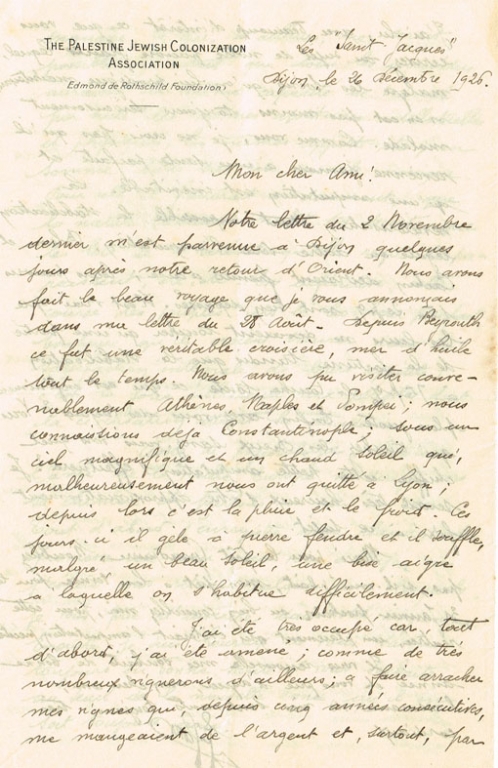 THE PALESTINE JEWISH COLONIZATION
ASSOCIATION
Edmond de Rothschild Foundation
Les "Saint Jacques"
Dijon, le 26 Décembre 1926.
Mon cher Ami!
Votre lettre du 2 Novembre
dernier m'est parvenue à Dijon quelques
jours après notre retour d'Orient. Nous avons
fait le beau voyage que je vous annonçais
dans ma lettre du 28 Août. Depuis Beyrouth
ce fut une véritable croisière, mer d'huile
tout le temps. Nous avons pu visiter conve-
nablement Athènes, Naples et Pompei; nous
connaissions déjà Constantinople; sous un
ciel magnifique et un chaud soleil qui,
malheureusement nous ont quitté à Lyon;
depuis lors c'est la pluie et le froid. Ces
jours-ci il gèle à pierre fendre et il souffle,
malgré un beau soleil, une bise aigre
à laquelle on s'habitue difficilement.
J'ai été très occupé car, tout
d'abord, j'ai été amené; comme de très
nombreux vignerons d'ailleurs; à faire arracher
mes vignes qui, depuis cinq années consécutives,
me mangeaient de l'argent et, surtout, par